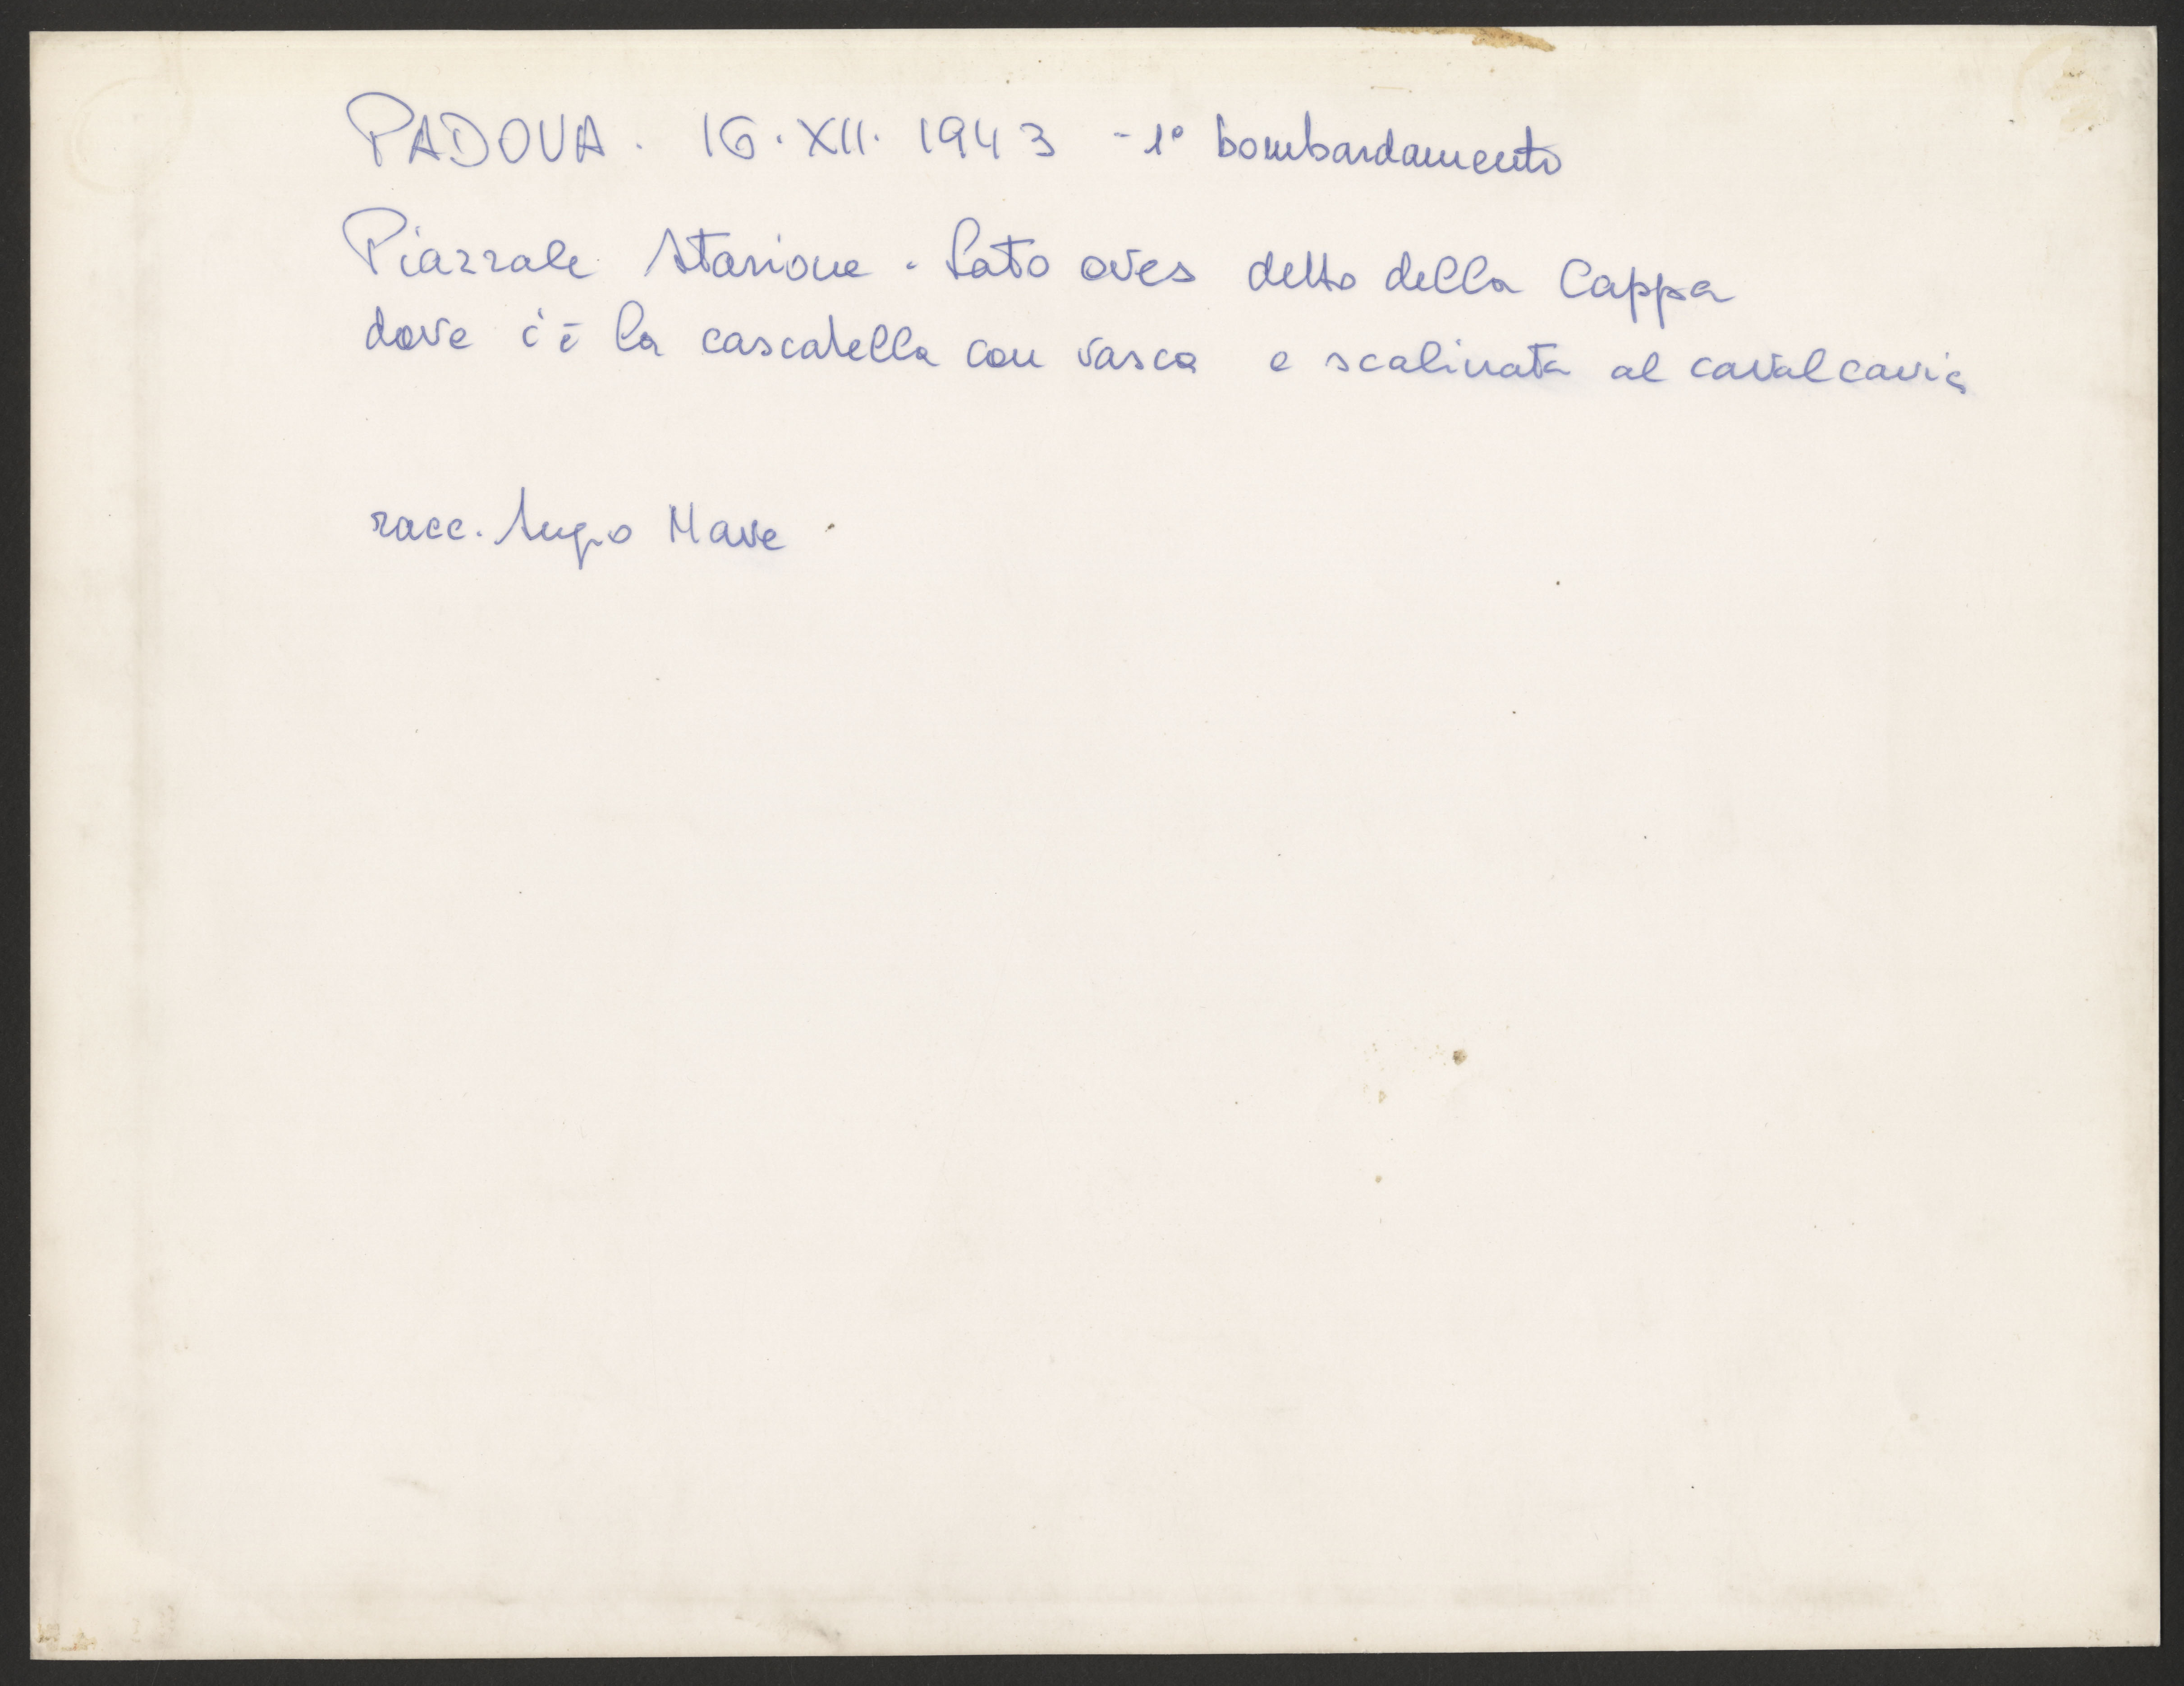 PADOVA. 16.XII.1943 - 1° bombardamento
Piazzale Stazione. Lato oves detto della Cappa
dove c'è la cascatella con vasca e scalinata al cavalcavia
racc. Mave